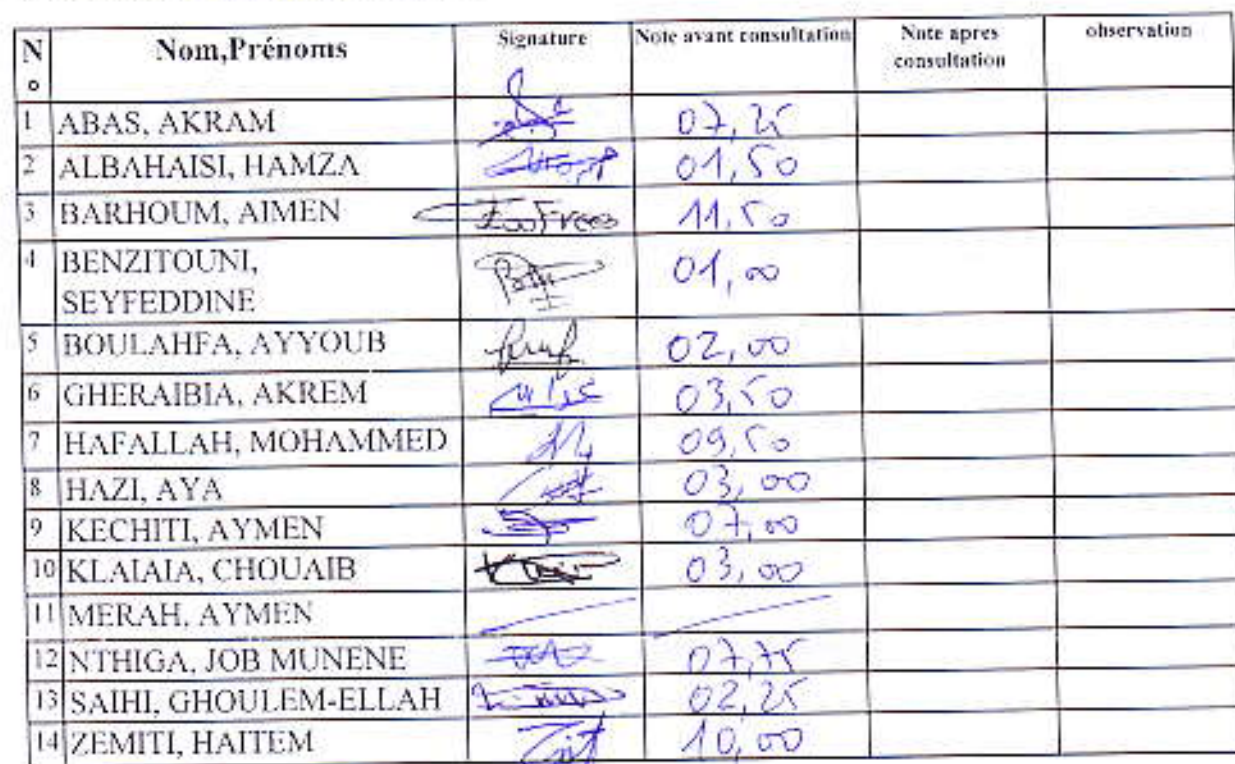 N° Nom,Prénoms Signature Note avant consultation Note apres consultation observation
1 ABAS, AKRAM 07,25
2 ALBAHAISI, HAMZA 01,50
3 BARHOUM, AIMEN 11,50
4 BENZITOUNI, SEYFEDDINE 01,00
5 BOULAHFA, AYYOUB 02,00
6 GHERAIBIA, AKREM 03,50
7 HAFALLAH, MOHAMMED 09,50
8 HAZI, AYA 03,00
9 KECHITI, AYMEN 07,00
10 KLAIAIA, CHOUAIB 03,00
11 MERAH, AYMEN
12 NTHIGA, JOB MUNENE 07,75
13 SAIHI, GHOULEM-ELLAH 02,25
14 ZEMITI, HAITEM 10,00